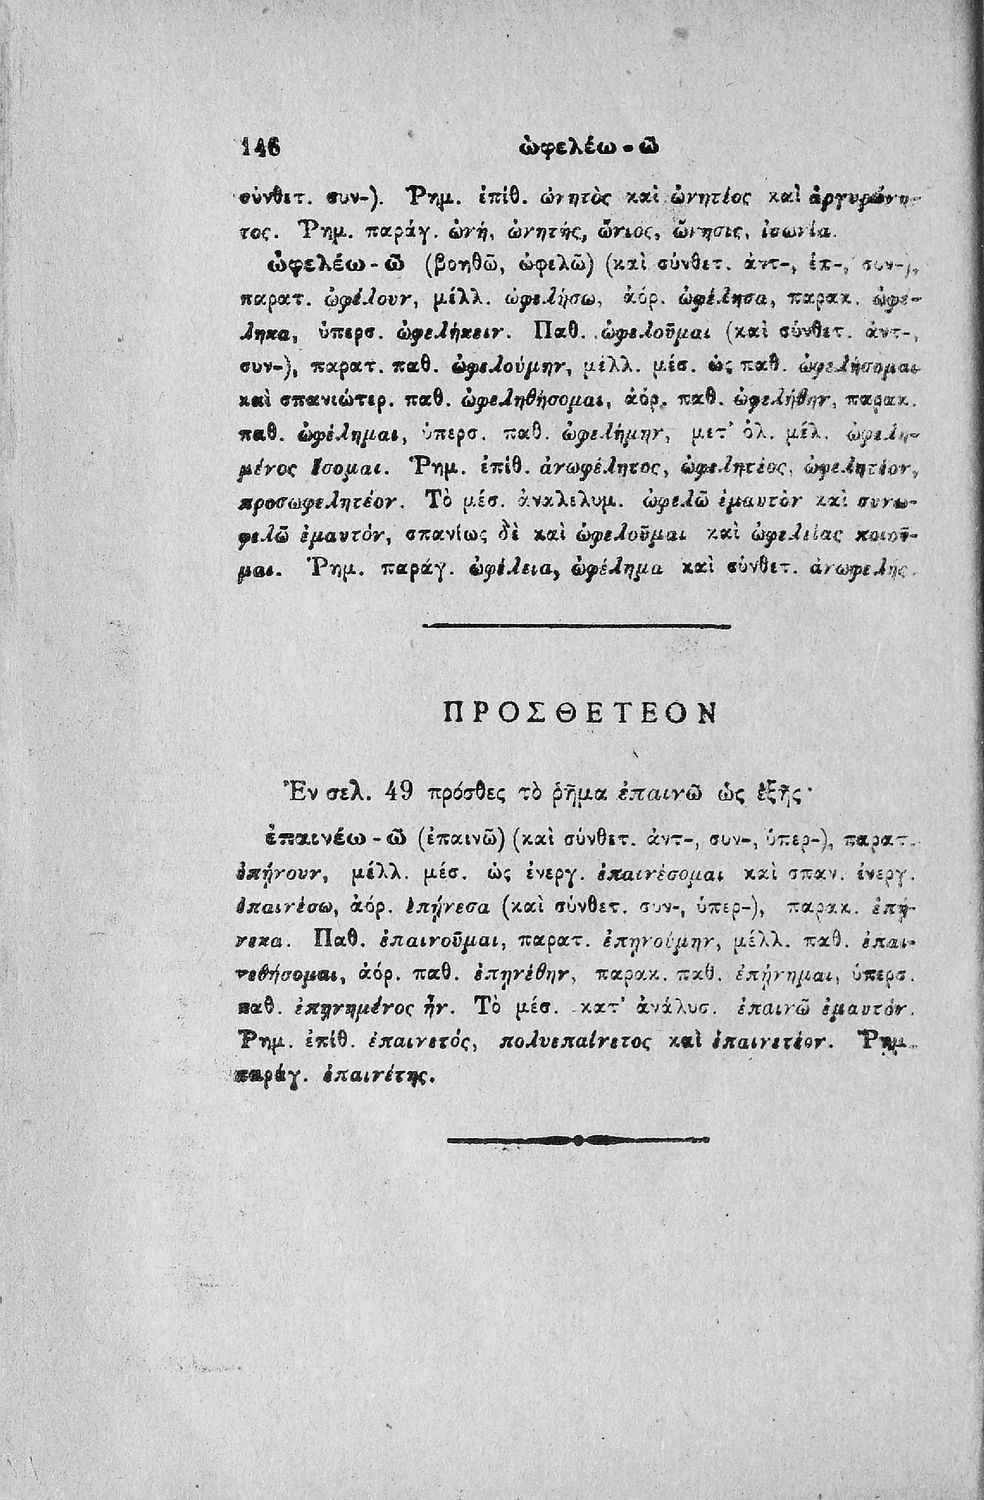 146 ὠφελέω - ῶ
σύνθετ. συν-). Ῥημ. ἐπίθ. ὠνητὸς καὶ ὠνητέος καὶ ἀργυρώνη-
τος. Ῥημ. παράγ. ὠνή, ὠνητής, ὤνιος, ὤνησις,
ὠφελέω - ῶ (βοηθῶ, ὠφελῶ) (καὶ σύνθετ. ἀντ-, ἐπ-, συν-),
παρατ. ὠφέλουν, μέλλ. ὠφελήσω, ἀόρ. ὠφέλησα, παρακ. ὠφέ-
ληκα, ὑπερσ. ὠφελήκειν. Παθ. ὠφελοῦμαι (καὶ σύνθετ. ἀντ-,
συν-), παρατ. παθ. ὠφελούμην, μέλλ. μέσ. ὡς παθ. ὠφελήσομαι
καὶ σπανιώτερ. παθ. ὠφεληθήσομαι, ἀόρ. παθ. ὠφελήθην, παρακ.
παθ. ὠφέλημαι, ὑπερσ. παθ. ὠφελήμην, μετ' ὁλ. μέλ. ὠφελη-
μένος ἔσομαι. Ῥημ. ἐπίθ. ἀνωφέλητος, ὠφελητέος, ὠφελητέον,
προσωφελητέον. Τὸ μέσ. ἀναλελυμ. ὠφελῶ ἐμαυτὸν καὶ συνω-
φελῶ ἐμαυτόν, σπανίως δὲ καὶ ὠφελοῦμαι καὶ ὠφελείας ποιοῦ-
μαι. Ῥημ. παράγ. ὠφέλεια, ὠφέλημα καὶ σύνθετ. ἀνωφελής.
ΠΡΟΣΘΕΤΕΟΝ
Ἐν σελ. 49 πρόσθες τὸ ῥῆμα ἐπαινῶ ὡς ἑξῆς·
ἐπαινέω - ῶ (ἐπαινῶ) (καὶ σύνθετ. ἀντ-, συν-, ὑπερ-), παρατ.
ἐπῄνουν, μέλλ. μέσ. ὡς ἐνεργ. ἐπαινέσομαι καὶ σπαν. ἐνεργ.
ἐπαινέσω, ἀόρ. ἐπῄνεσα (καὶ σύνθετ. συν-, ὑπερ-), παρακ. ἐπῄ-
νεκα. Παθ. ἐπαινοῦμαι, παρατ. ἐπῃνούμην, μέλλ. παθ. ἐπαι-
νεθήσομαι, ἀόρ. παθ. ἐπῃνέθην, παρακ. παθ. ἐπῄνημαι, ὑπερσ.
παθ. ἐπῃνημένος ἦν. Τὸ μέσ. κατ' ἀνάλυσ. ἐπαινῶ ἐμαυτόν.
Ῥημ. ἐπίθ. ἐπαινετός, πολυεπαίνετος καὶ ἐπαινετέον. Ῥημ.
παράγ. ἐπαινέτης.